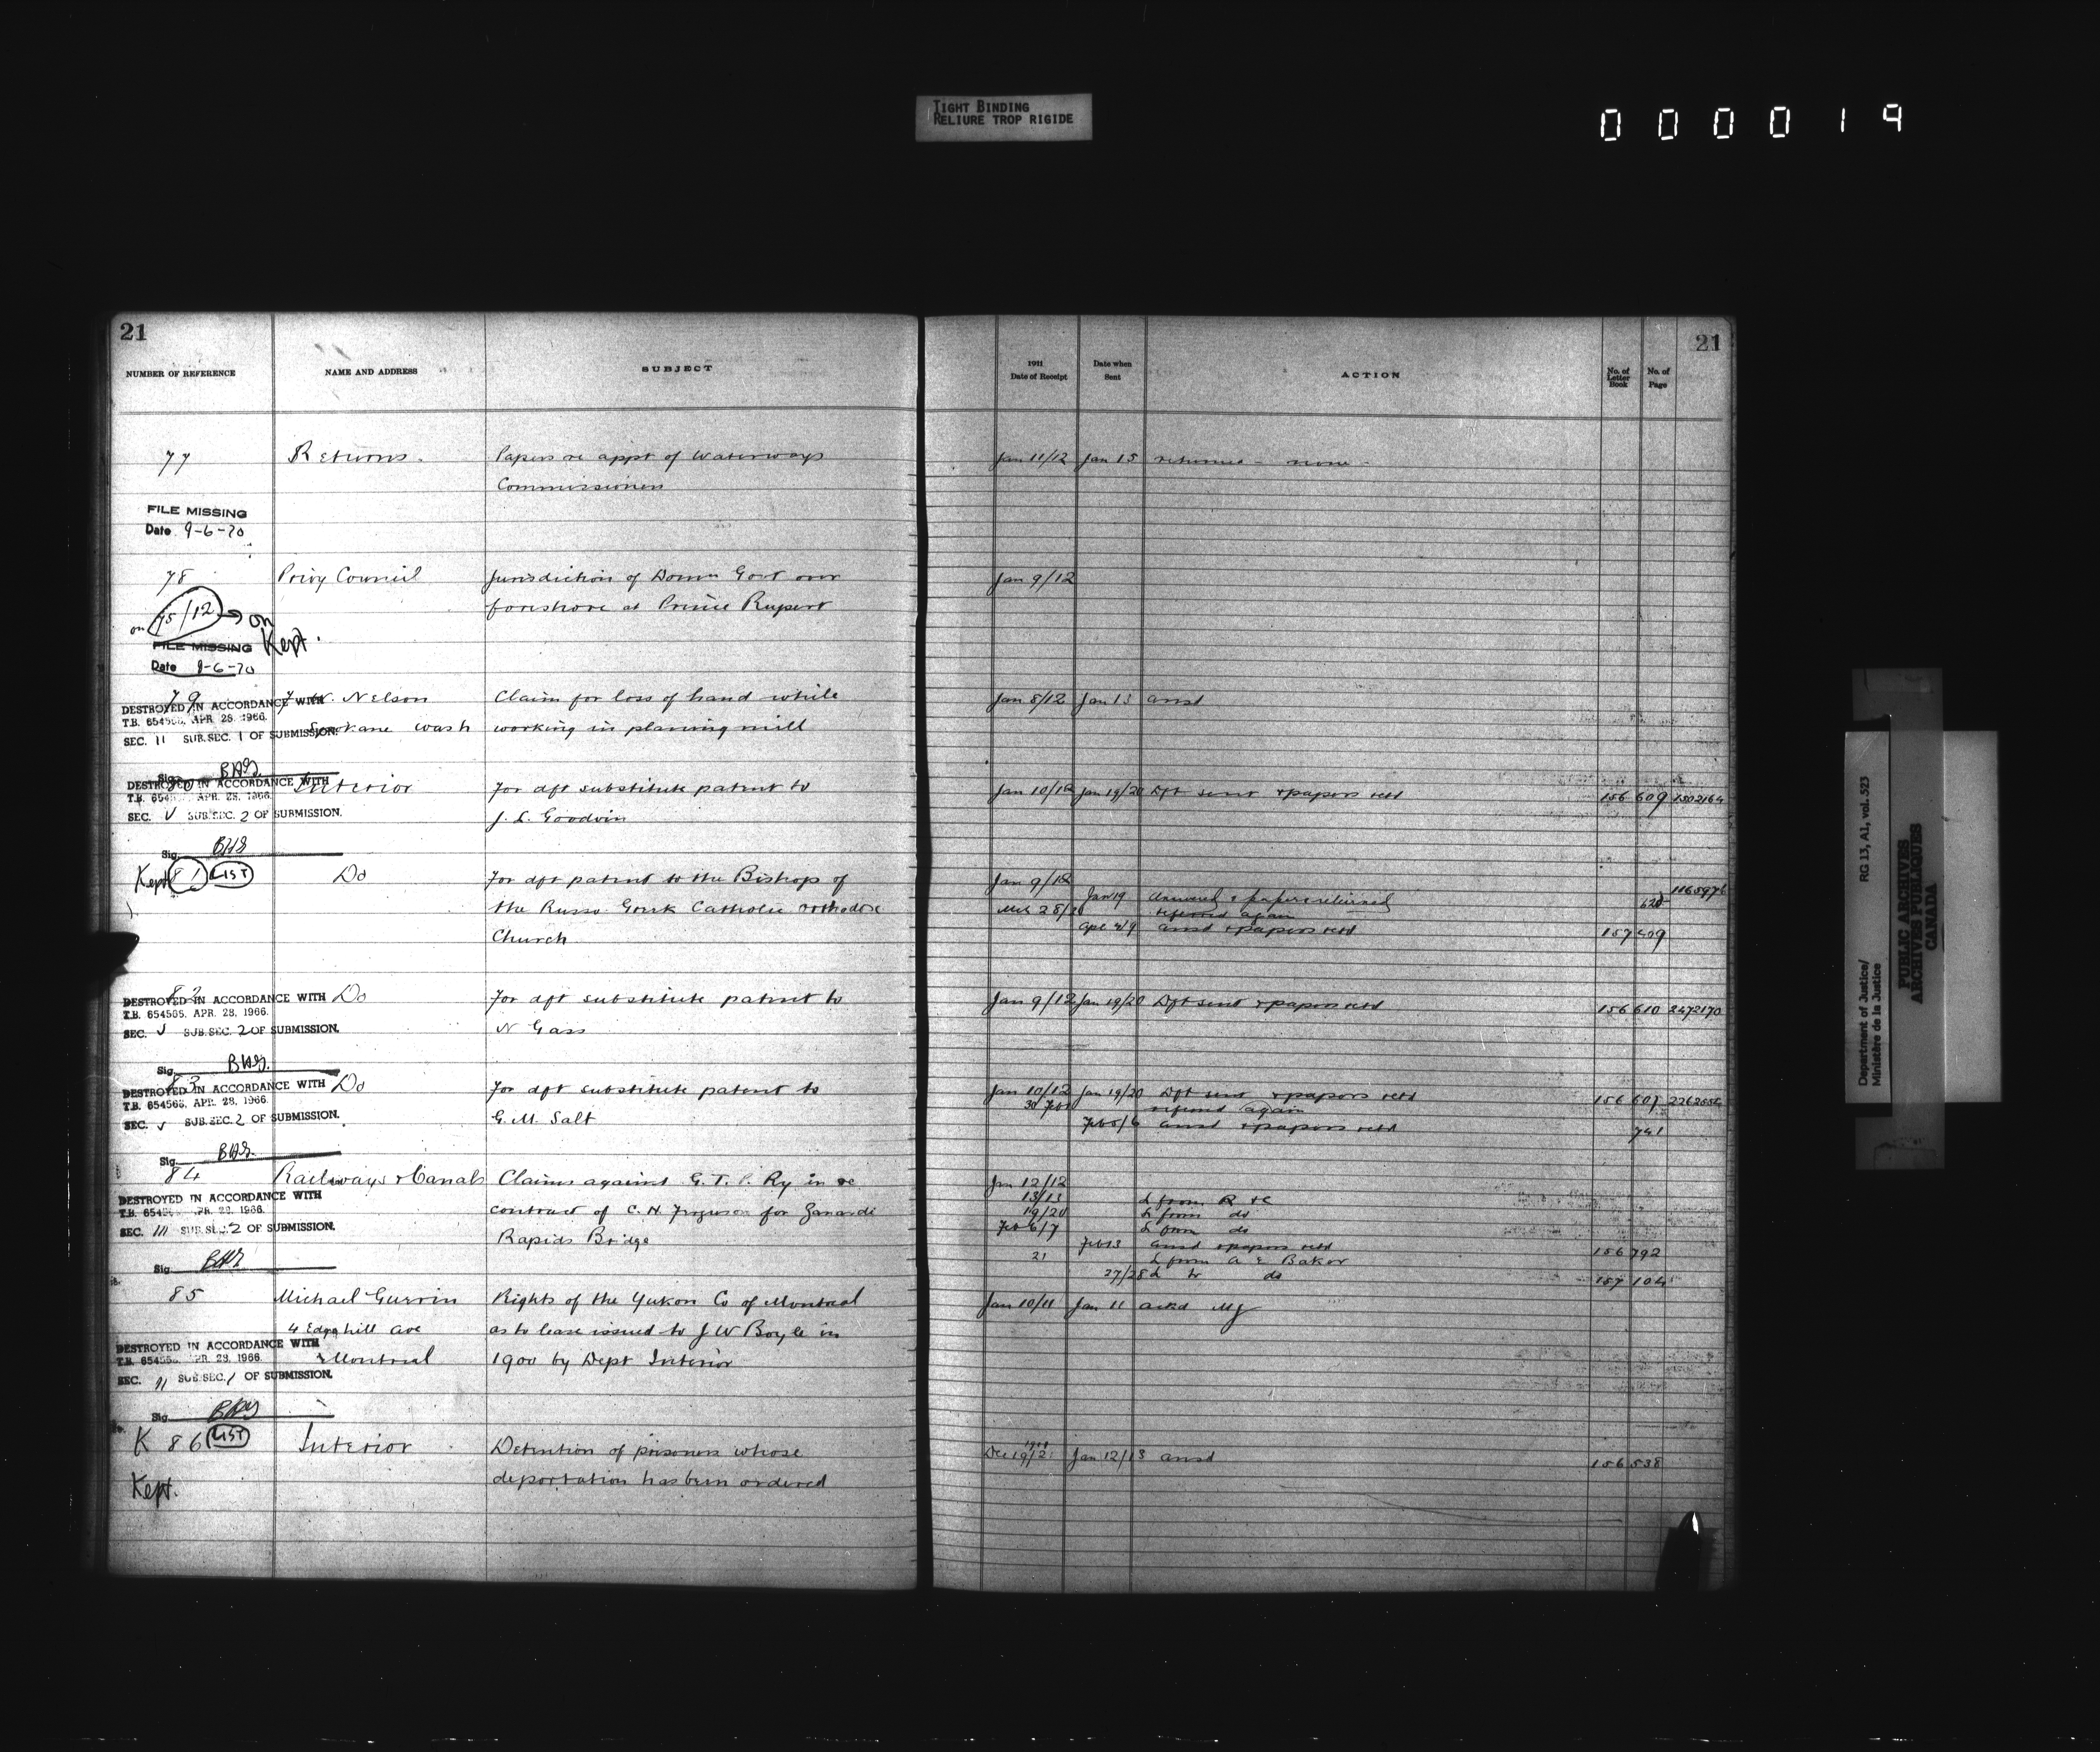 TIGHT BINDING
RELIURE TROP RIGIDE
000019
21
NUMBER OF REFERENCE NAME AND ADDRESS SUBJECT
77 Returns. Papers re appt of Waterways
Commissioners
FILE MISSING
Date 9-6-70
78 Privy Council Jurisdiction of Domn Govt over
foreshore at Prince Rupert
on 75/12 → on
Kept.
FILE MISSING
Date 9-6-70
79 W. Nelson Claim for loss of hand while
DESTROYED IN ACCORDANCE WITH
T.B. APR. 28, 1966.
Spokane Wash working in planing mill
SEC. 11 SUB.SEC. 1 OF SUBMISSION.
Sig.
80 Interior For dft substitute patent to
DESTROYED IN ACCORDANCE WITH
T.B. APR. 28, 1966.
J. L. Goodwin
SEC. V SUB.SEC. 2 OF SUBMISSION.
Sig.
Kept 81 LIST Do For dft patent to the Bishop of
the Russo Greek Catholic Orthodox
Church
82 Do For dft substitute patent to
DESTROYED IN ACCORDANCE WITH
T.B. 654565, APR. 28, 1966.
N Gass
SEC. V SUB.SEC. 2 OF SUBMISSION.
Sig.
83 Do For dft substitute patent to
DESTROYED IN ACCORDANCE WITH
T.B. 654565, APR. 28, 1966.
G. M. Salt
SEC. V SUB.SEC. 2 OF SUBMISSION.
Sig.
84 Railways & Canals Claims against G. T. P. Ry in re
DESTROYED IN ACCORDANCE WITH
contract of C. H. Ferguson for Zanardi
T.B. APR. 28, 1966.
SEC. III SUB.SEC. 2 OF SUBMISSION.
Rapids Bridge
Sig.
85 Michael Guerin Rights of the Yukon Co of Montreal
4 Edgehill Ave as to lease issued to J W Boyle in
DESTROYED IN ACCORDANCE WITH
T.B. APR. 28, 1966.
Montreal 1900 by Dept Interior
SEC. 11 SUB.SEC. 1 OF SUBMISSION.
Sig.
K 86 LIST Interior Detention of prisoners whose
Kept. deportation has been ordered
21
1911
Date of Receipt Date when Sent ACTION No. of Letter Book No. of Page
Jan 11/12 Jan 15 returned - none
Jan 9/12
Jan 8/12 Jan 13 ansd
Jan 10/12 Jan 19/20 Dft sent & papers retd 156 609 1502164
Jan 9/12
1165976
Jan 19 Answered & papers returned
referred again
ansd & papers retd 157 409
Jan 9/12 Jan 19/20 Dft sent & papers retd 156 610 2472170
Jan 10/12 Jan 19/20 Dft sent & papers retd 156 607
referred again
Feb 5/6 ansd & papers retd 741
Jan 12/12
13/13 L from R & C
19/20 L from do
Feb 6/7 L from do
Feb 13 ansd & papers retd 156 792
21 L from A E Baker
27/28 L to do 157 104
Jan 10/11 Jan 11 ackd MJ
1911
Dec 19/21 Jan 12/13 ansd 156 538
Department of Justice/
Ministère de la Justice
RG 13, A1, vol. 523
PUBLIC ARCHIVES
ARCHIVES PUBLIQUES
CANADA